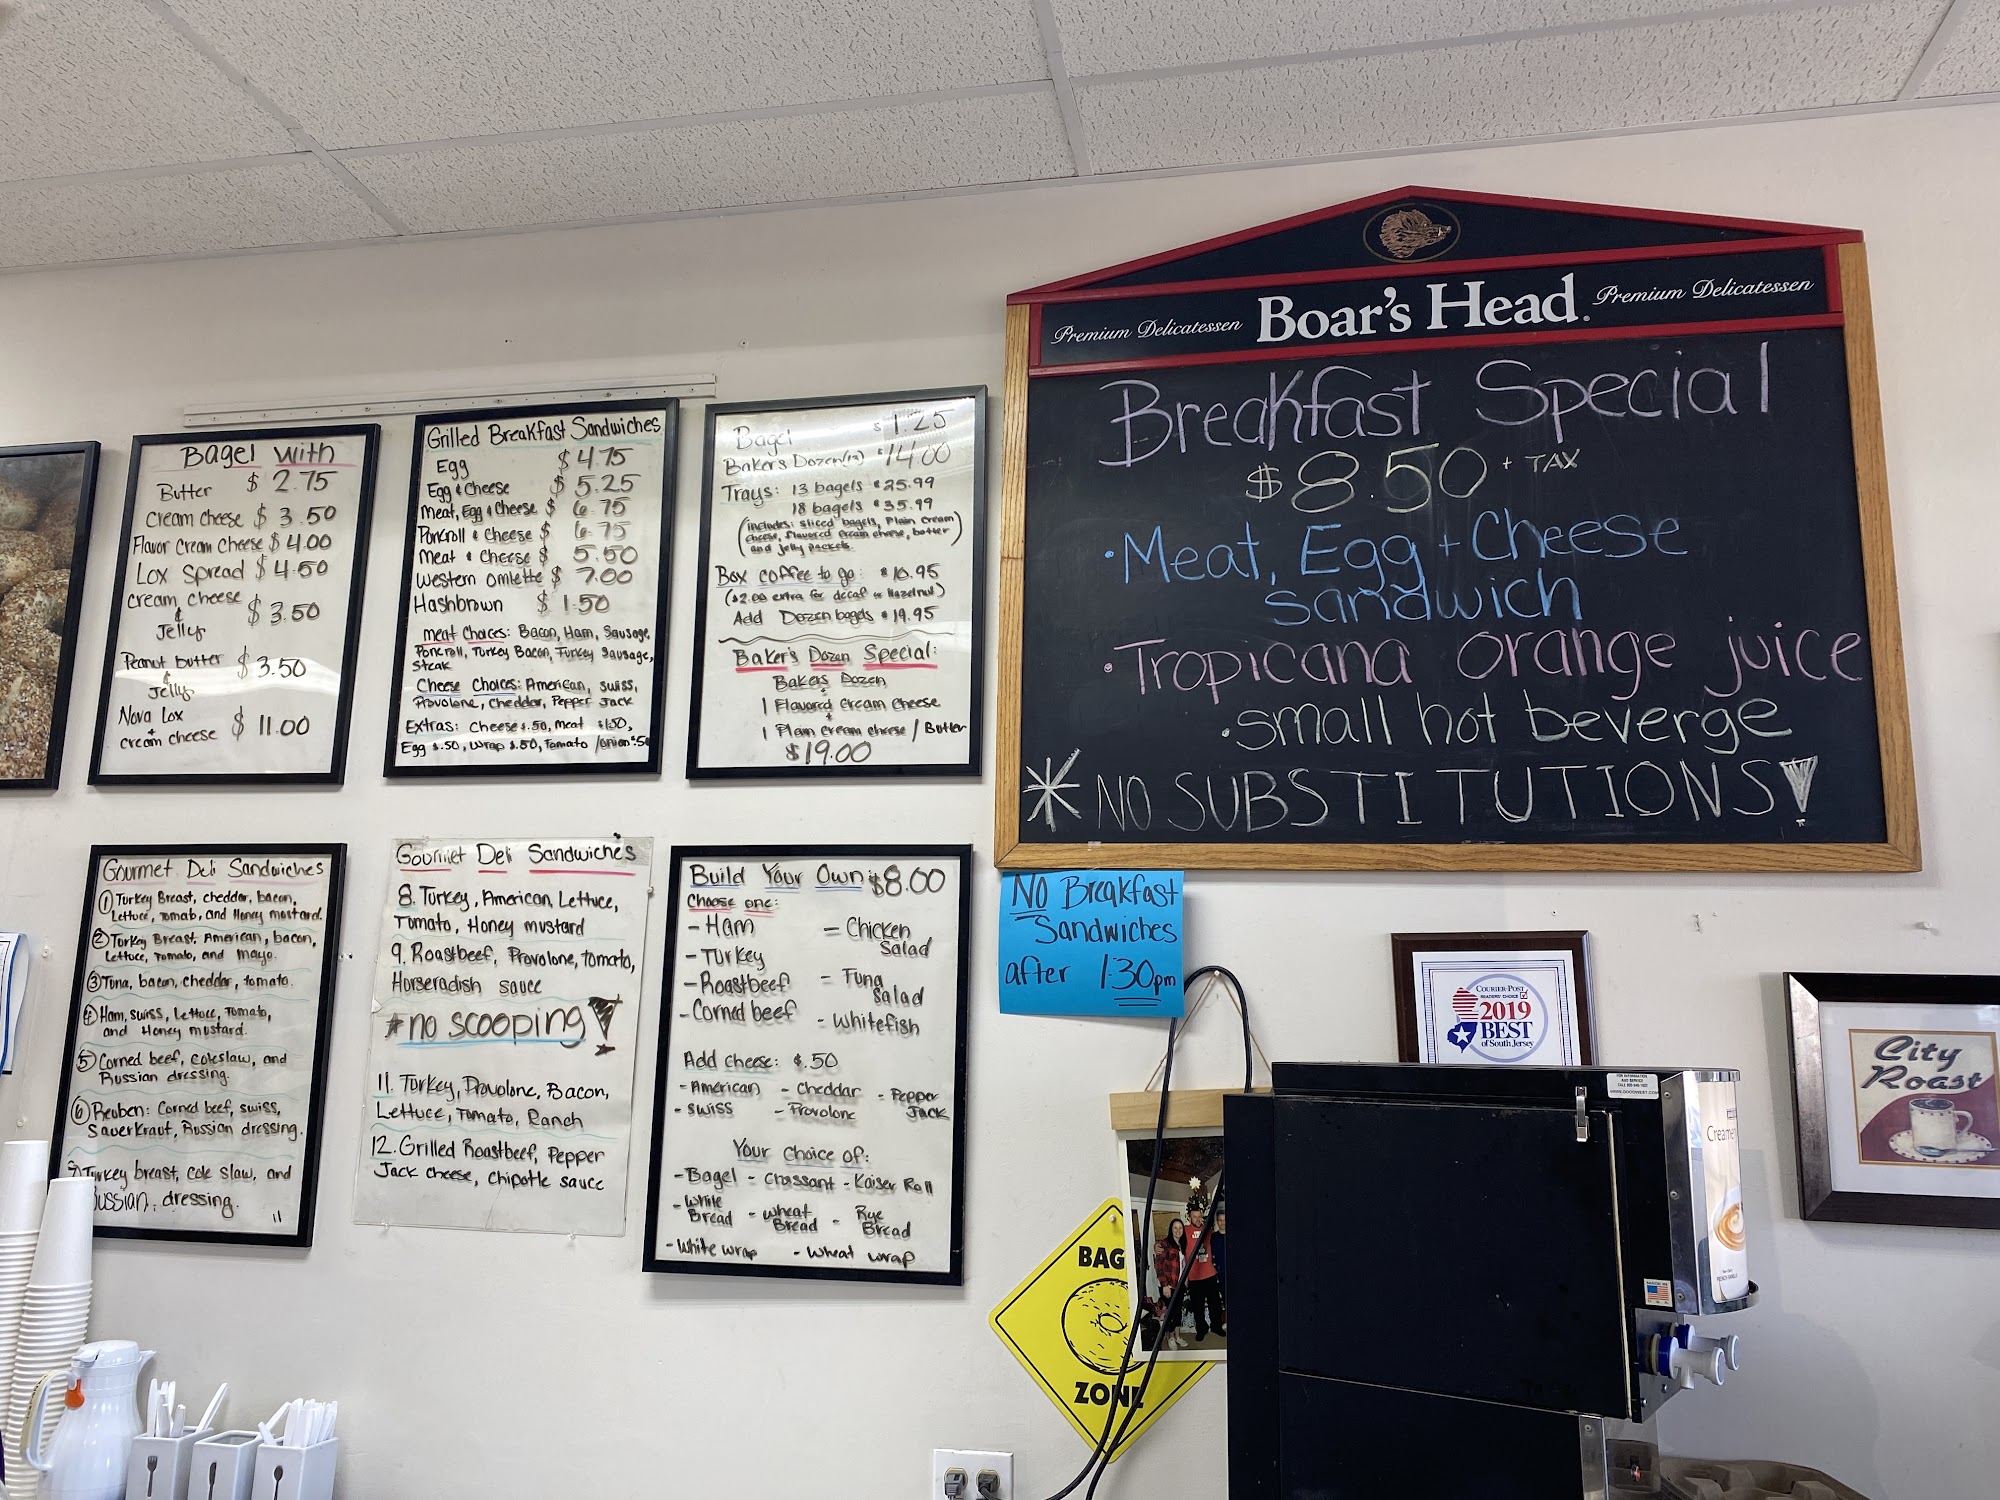 Bagel with
Butter $ 2.75
Cream cheese $ 3.50
Flavor cream cheese $ 4.00
Lox spread $ 4.50
cream cheese
&
Jelly $ 3.50
Peanut butter
&
Jelly $ 3.50
Nova Lox
+
cream cheese $ 11.00
Grilled Breakfast Sandwiches
Egg $ 4.75
Egg & Cheese $ 5.25
Meat, Egg & Cheese $ 6.75
Porkroll & Cheese $ 6.75
Meat & Cheese $ 5.50
Western omlette $ 7.00
Hashbrown $ 1.50
Meat Choices: Bacon, Ham, Sausage,
Porkroll, Turkey Bacon, Turkey Sausage,
Steak
Cheese Choices: American, swiss,
Provolone, Cheddar, Pepper Jack
Extras: Cheese $.50, meat $1.50,
Egg $.50, wrap $.50, Tomato /onion $.50
Bagel $ 1.25
Baker's Dozen(13) $14.00
Trays: 13 bagels $25.99
18 bagels $35.99
(includes: sliced bagels, Plain cream
cheese, flavored cream cheese, butter)
and jelly packets
Box coffee to go: $16.95
($2.00 extra for decaf or Hazelnut)
Add Dozen bagels $14.95
Baker's Dozen Special:
Bakers Dozen
+
1 Flavored cream cheese
+
1 Plain cream cheese / Butter
$19.00
Premium Delicatessen Boar's Head. Premium Delicatessen
Breakfast Special
$8.50 + TAX
• Meat, Egg + Cheese
sandwich
• Tropicana orange juice
• small hot beverge
* NO SUBSTITUTIONS!
Gourmet Deli Sandwiches
① Turkey Breast, cheddar, bacon,
Lettuce, tomato, and Honey mustard.
② Turkey Breast, American, bacon,
Lettuce, Tomato, and mayo.
③ Tuna, bacon, cheddar, tomato.
④ Ham, swiss, Lettuce, Tomato,
and Honey mustard.
⑤ Corned beef, coleslaw, and
Russian dressing.
⑥ Reuben: Corned beef, swiss,
Sauerkraut, Russian dressing.
Turkey breast, cole slaw, and
Russian, dressing.
Gourmet Deli Sandwiches
8. Turkey, American, Lettuce,
Tomato, Honey mustard
9. Roastbeef, Provolone, tomato,
Horseradish sauce
* no scooping!
11. Turkey, Provolone, Bacon,
Lettuce, Tomato, Ranch
12. Grilled Roastbeef, Pepper
Jack cheese, Chipotle sauce
Build Your Own: $8.00
Choose one:
- Ham - Chicken Salad
- Turkey
- Roastbeef - Tuna Salad
- Corned beef - Whitefish
Add cheese: $.50
- American - Cheddar - Pepper Jack
- swiss - Provolone
Your Choice of:
- Bagel - croissant - Kaiser Roll
- White Bread - wheat Bread - Rye Bread
- White wrap - Wheat wrap
NO Breakfast
Sandwiches
after 1:30pm
COURIER-POST
READERS' CHOICE
2019
BEST
of South Jersey
City
Roast
FOR INFORMATION
AND SERVICE
Creamer
BAG
ZONE